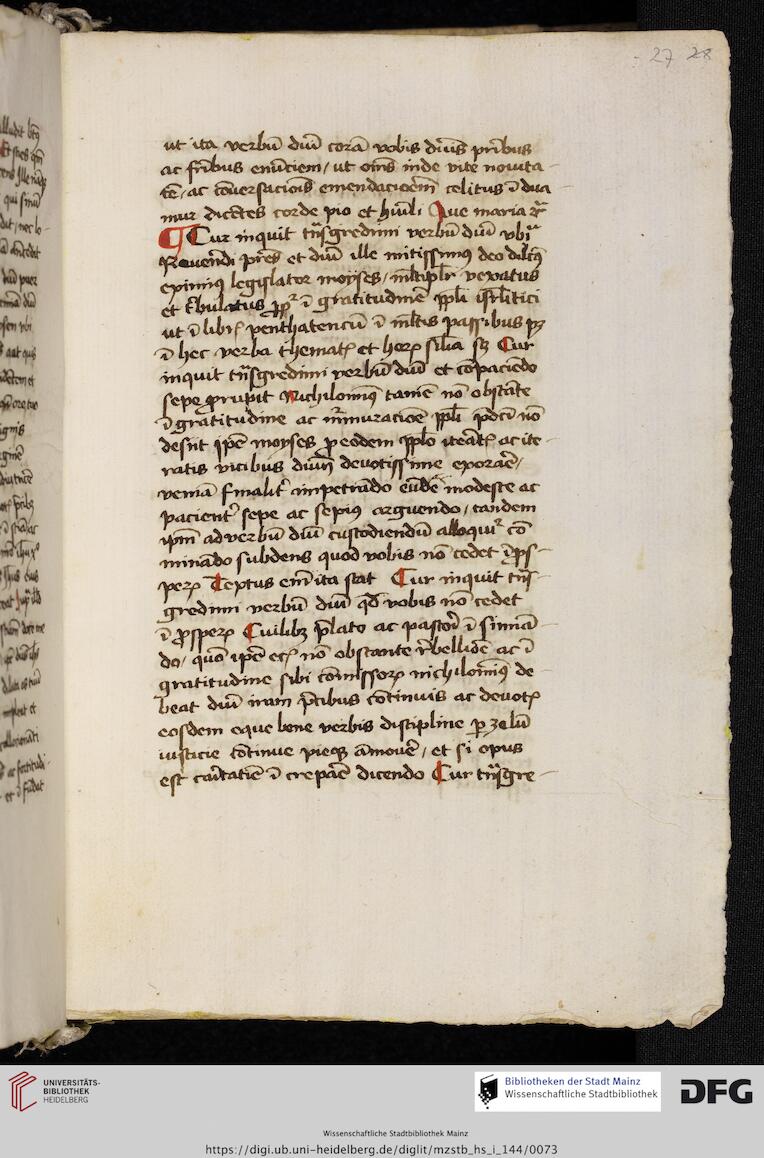 27 28
ut ita verbū diuī corā vobis diuīs pr̄ibus
ac fr̄ibus enūciem / ut om̄s inde vite nouita-
tē / ac cōuersaciois emendacioēm celitus īdua-
mur dicētes corde pio et hūili Aue maria
Cur inquit tn̄sgredimī verbū diuī vbi
Reuerēdi pr̄es et diuī ille mitissimꝰ deo dilcūs
eximiꝰ legislator moyses / mltiplr vexatus
et tribulatus ꝓpt ī gratitudinē ppli isrlitici
ut ī libr penthateucū ī mltis passibus pꝫ
ī hec verba themat et hoꝝ silia sꝫ Cur
inquit tn̄sgredimī verbū diuī et cōpaciēdo
sepe ꝓrupit Nichilominꝰ tamē nō obstāte
īgratitudine ac murmuracioē ppli pdcī nō
desiit ipē moyses ꝓ eodem pplo iteāt ac ite-
ratis vicibus diuīs deuotissime exorāē /
veniā finalit impetrādo eūdē modeste ac
pacient sepe ac sepius arguendo / tandem
ipm ad verbū diuī custodiendū alloqui cō
minādo subdens quod vobis nō cedet ī ꝓs-
peꝝ Textus em̄ ita stat Cur inquit tn̄s-
gredimī verbū diuī qd vobis nō cedet
ī ꝓspeꝝ Cuilibꝫ plato ac pastori īsinuā
do / quō ipē nō obstante rebellioē ac ī
gratitudine sibi cōmissoꝝ nichilominꝰ de-
beat diuī iram p̄cibus cōtinuis ac deuot
eosdem eque bene verbis discipline p zelū
iusticie cōtinue pieqꝫ amouē / et si opus
est caritatiē īcrepāē dicendo Cur tn̄sgre-
UNIVERSITÄTS-
BIBLIOTHEK
HEIDELBERG
Bibliotheken der Stadt Mainz
Wissenschaftliche Stadtbibliothek
DFG
Wissenschaftliche Stadtbibliothek Mainz
https://digi.ub.uni-heidelberg.de/diglit/mzstb_hs_i_144/0073